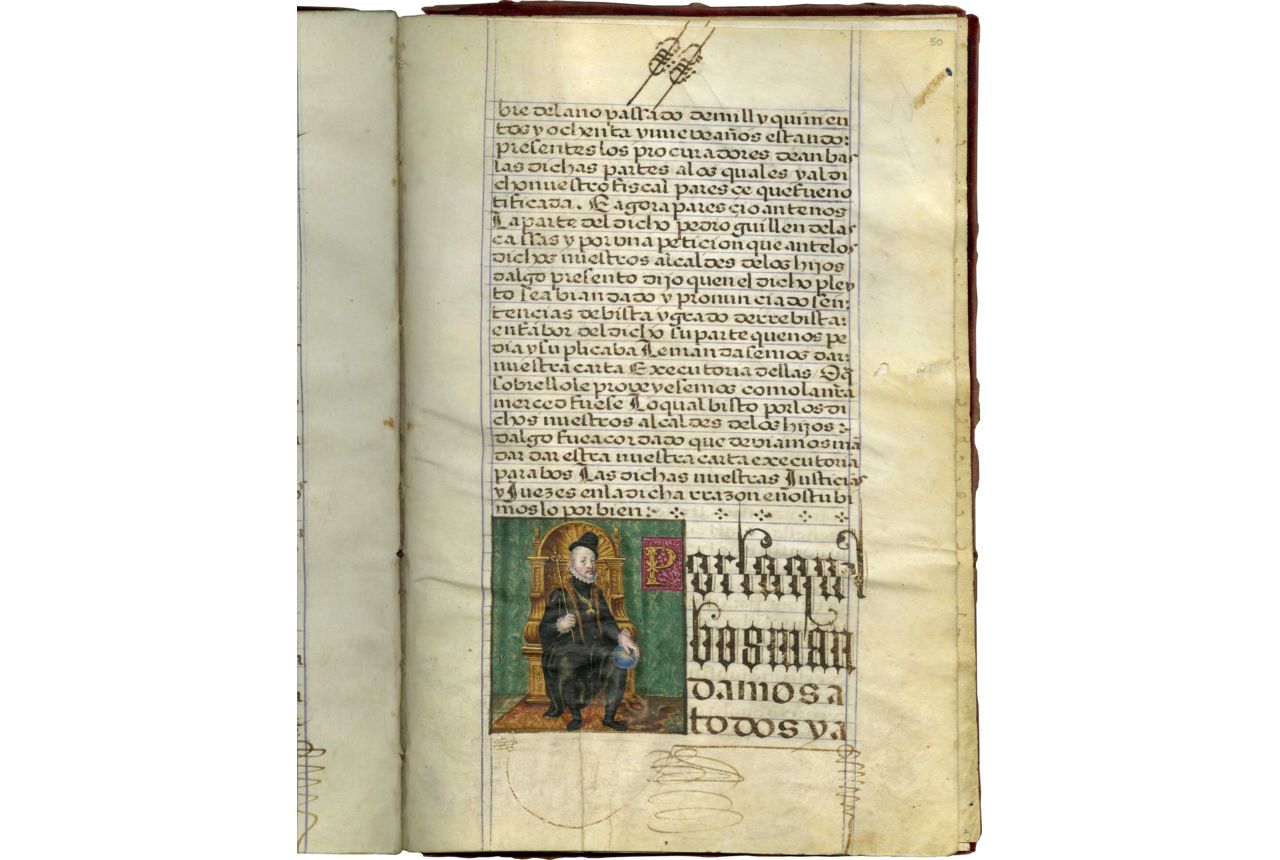 50
bre del año passado de mill y quinien
tos y ochenta y nueve años estando:
presentes los procuradores de anbas
las dichas partes a los quales y al di
cho nuestro fiscal paresçe que fue no
tificada. E agora paresçio ante nos
La parte del dicho pedro guillen de las
cassas y por una petiçion que ante los
dichos nuestros alcaldes de los hijos
dalgo presento dijo quen el dicho pley
to se abian dado y pronunçiado sen:
tencias de bista y grado de rrebista:
en fabor del dicho su parte que nos pe
dia y suplicaba Le mandasemos dar:
nuestra carta Executoria dellas / O q̄
sobrello le proveyesemos como la nr̄a
merced fuese Lo qual bisto por los di
chos nuestros alcaldes de los hijos :
dalgo fue acordado que deviamos mā
dar dar esta nuestra carta executoria
para bos Las dichas nuestras Justicias
y Juezes en la dicha rrazon e nos tubi
moslo por bien:
Por la qual
bos man
damos a
todos y a